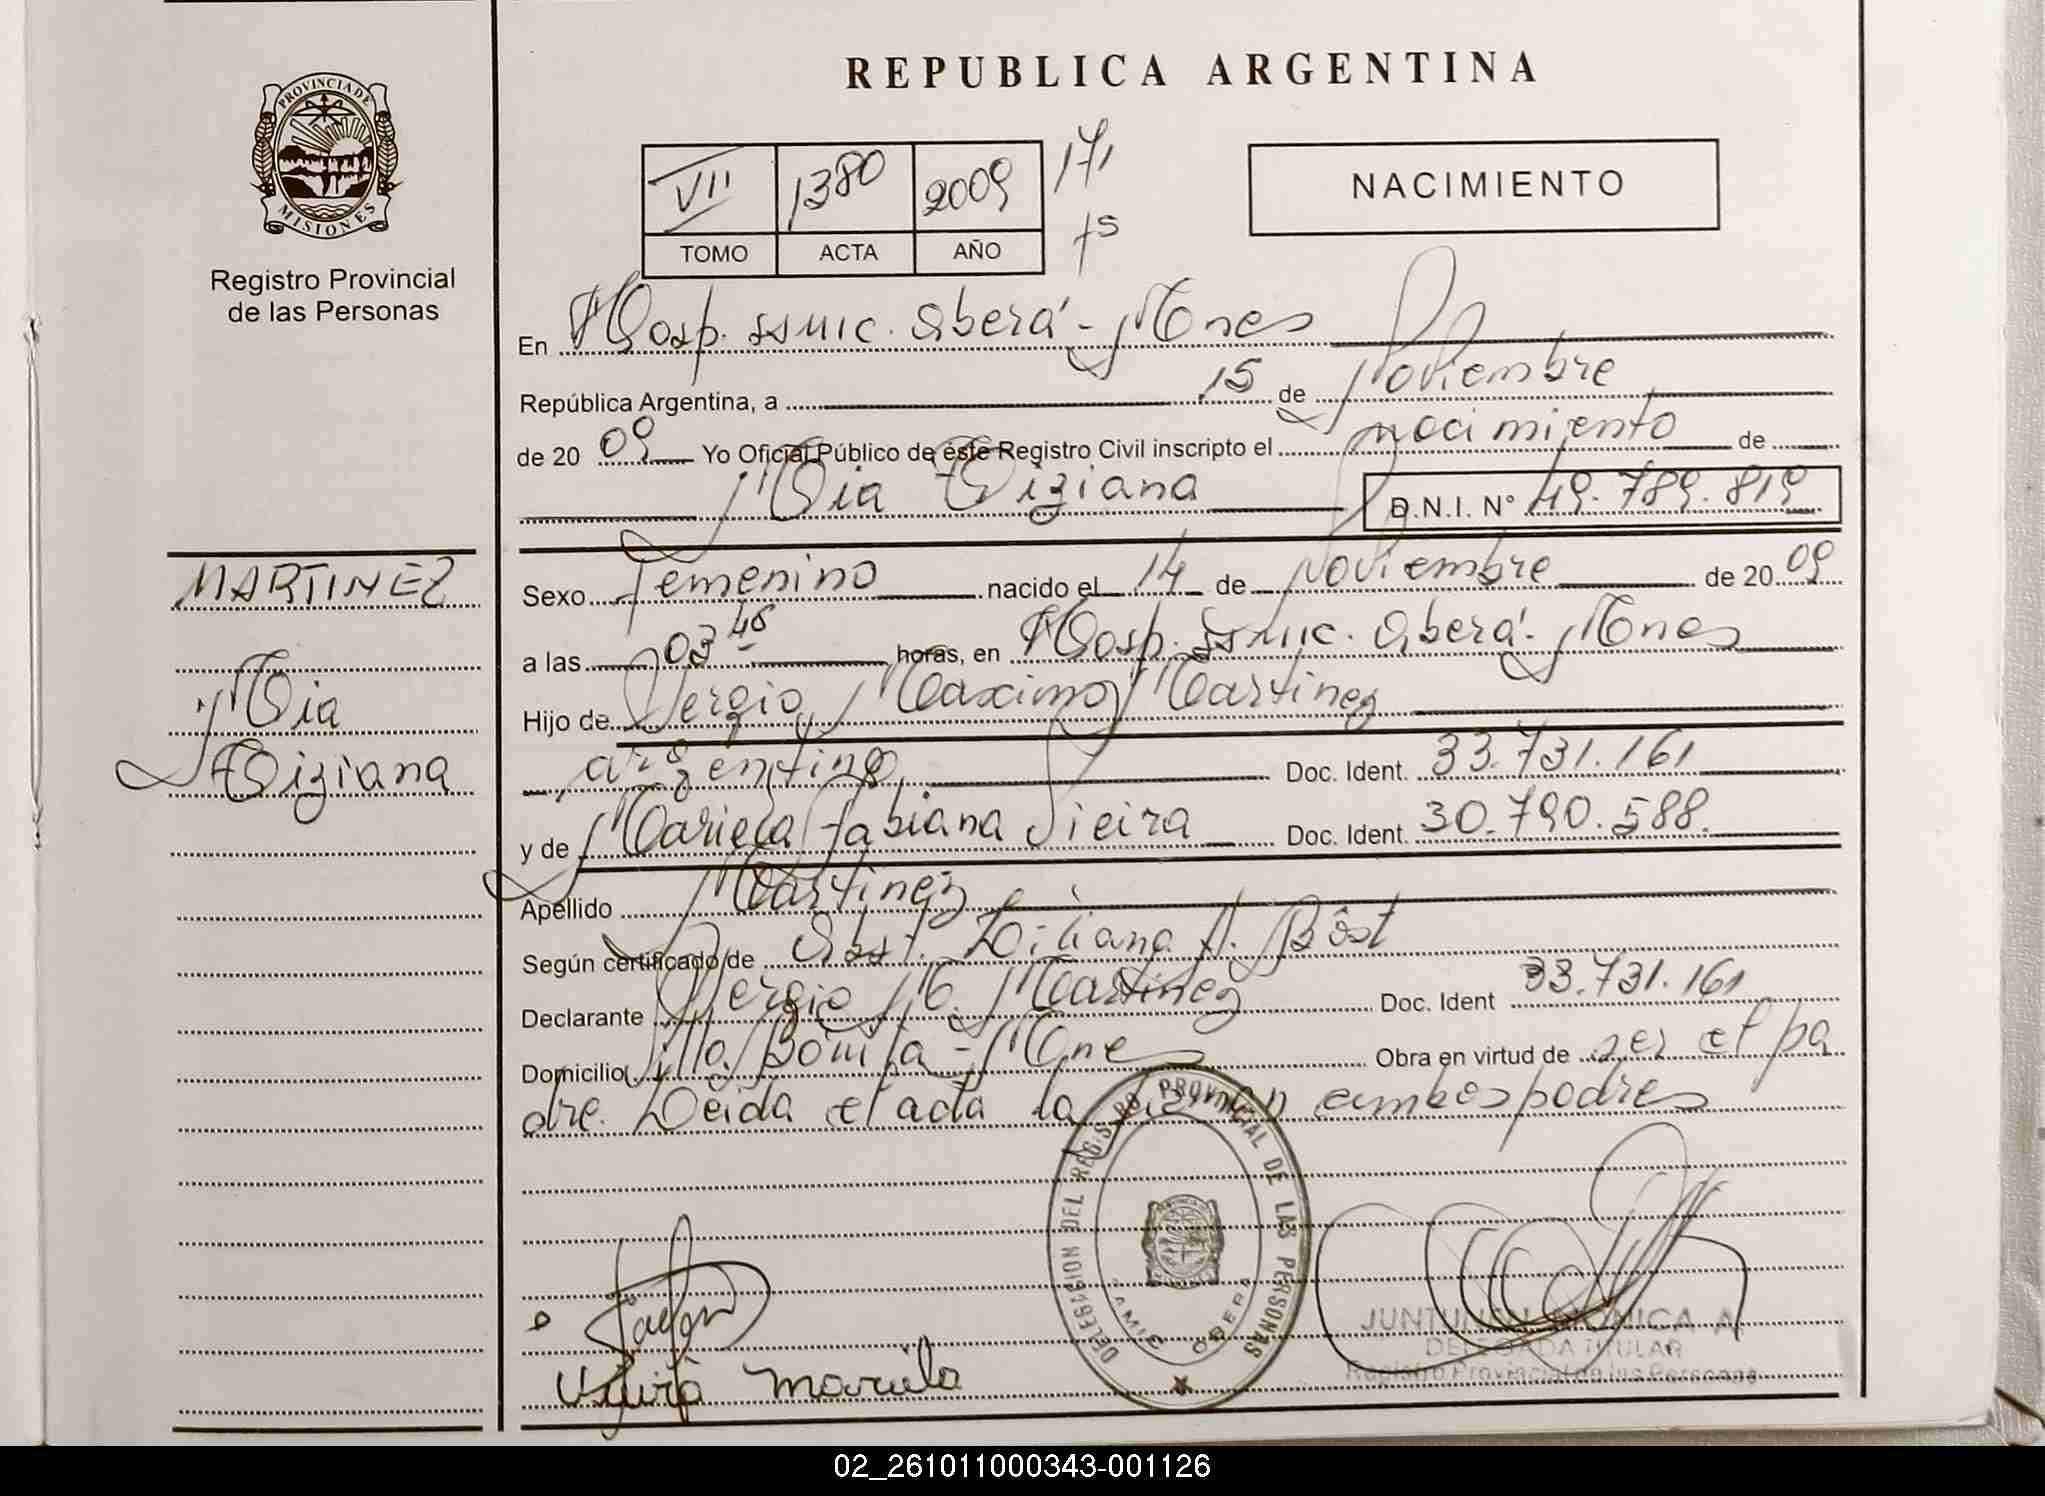 REPUBLICA ARGENTINA
PROVINCIA DE
MISIONES
Registro Provincial
de las Personas
VII 1380 2009 171
TOMO ACTA AÑO fs
NACIMIENTO
En Hosp. ssmic. Oberá - Mnes
República Argentina, a 15 de Noviembre
de 2009 Yo Oficial Público de éste Registro Civil inscripto el nacimiento de
Mia Tiziana D.N.I. N° 49.789.819
MARTINEZ
Mia
Tiziana
Sexo femenino nacido el 14 de Noviembre de 2009
a las 03 48 horas, en Hosp. ssmic. Oberá - Mnes
Hijo de Sergio Maximo Martinez
argentino Doc. Ident. 33.731.161
y de Mariela fabiana Vieira Doc. Ident. 30.790.588.
Apellido Martinez
Según certificado de Obst. Liliana A. Bôst
Declarante Sergio M. Martinez Doc. Ident 33.731.161
Domicilio Villa Bonita - Mnes Obra en virtud de ser el pa
dre. Leida el acta la firman ambos padres
DELEGACION DEL REGISTRO PROVINCIAL DE LAS PERSONAS
OBERA
Vieira Mariela
JUNTUNEN MONICA A.
DELEGADA TITULAR
Registro Provincial de las Personas
02_261011000343-001126